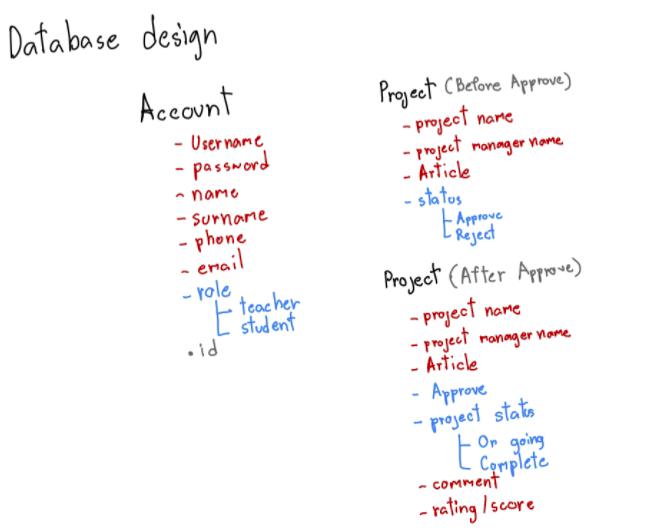 Database design
Account
- Username
- password
- name
- surname
- phone
- email
- role
teacher
student
• id
Project (Before Approve)
- project name
- project manager name
- Article
- status
Approve
Reject
Project (After Approve)
- project name
- project manager name
- Article
- Approve
- project status
On going
Complete
- comment
- rating/score